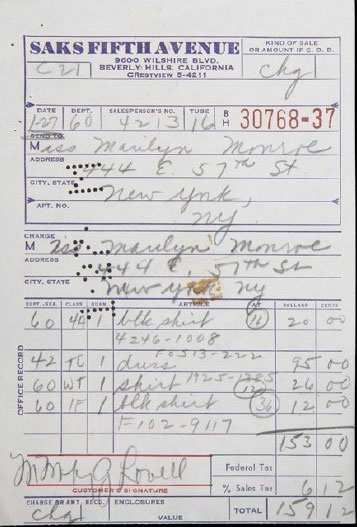 SAKS FIFTH AVENUE
9600 WILSHIRE BLVD.
BEVERLY HILLS, CALIFORNIA
CRESTVIEW 5-4211
KIND OF SALE
OR AMOUNT IF C. O. D.
C21
chg
DATE DEPT. SALESPERSON'S NO. TUBE
1-27 60 4213 16
B
H 30768-37
SEND TO
Miss Marilyn Monroe
ADDRESS
444 E. 57th St
CITY, STATE
New York,
APT. NO.
NY.
CHARGE
Miss Marilyn Monroe
ADDRESS
444 E. 57th St
CITY, STATE
New York. NY
DEPT.-SEA. CLASS QUAN. ARTICLE AT DOLLARS CENTS
OFFICE RECORD
60 4A 1 blk shirt 16 20 00
4246-1008
F0513-222
42 TC 1 dress 95 00
60 WT 1 shirt 1925-1285 26 00
60 1F 1 blk shirt 36 12 00
F102-9117
153 00
CUSTOMER'S SIGNATURE
Federal Tax
% Sales Tax 6 12
CHARGE OR ANT. RECD. ENCLOSURES
chg
VALUE
TOTAL 159 12